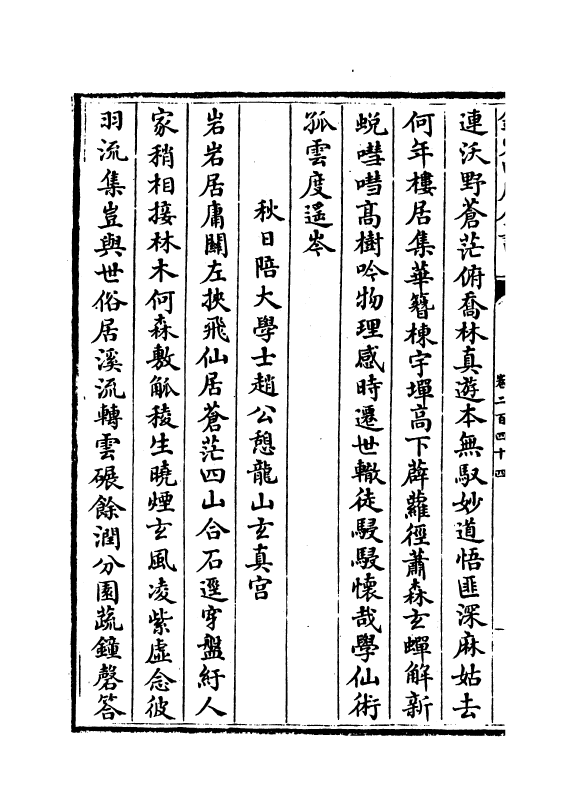 卷二百四十四
連沃野蒼茫俯喬林真遊本無馭妙道悟匪深麻姑去
何年樓居集華簪棟宇墠高下薜蘿徑蕭森玄蟬解新
蛻嘒嘒高樹吟物理感時遷世轍徒駸駸懷哉學仙術
孤雲度遥岑
秋日陪大學士趙公憩龍山玄真宫
岩岩居庸關左挾飛仙居蒼茫四山合石逕穿盤紆人
家稍相接林木何森敷觚稜生曉煙玄風凌紫虚念彼
羽流集豈與世俗居溪流轉雲碾餘潤分園蔬鐘磬答